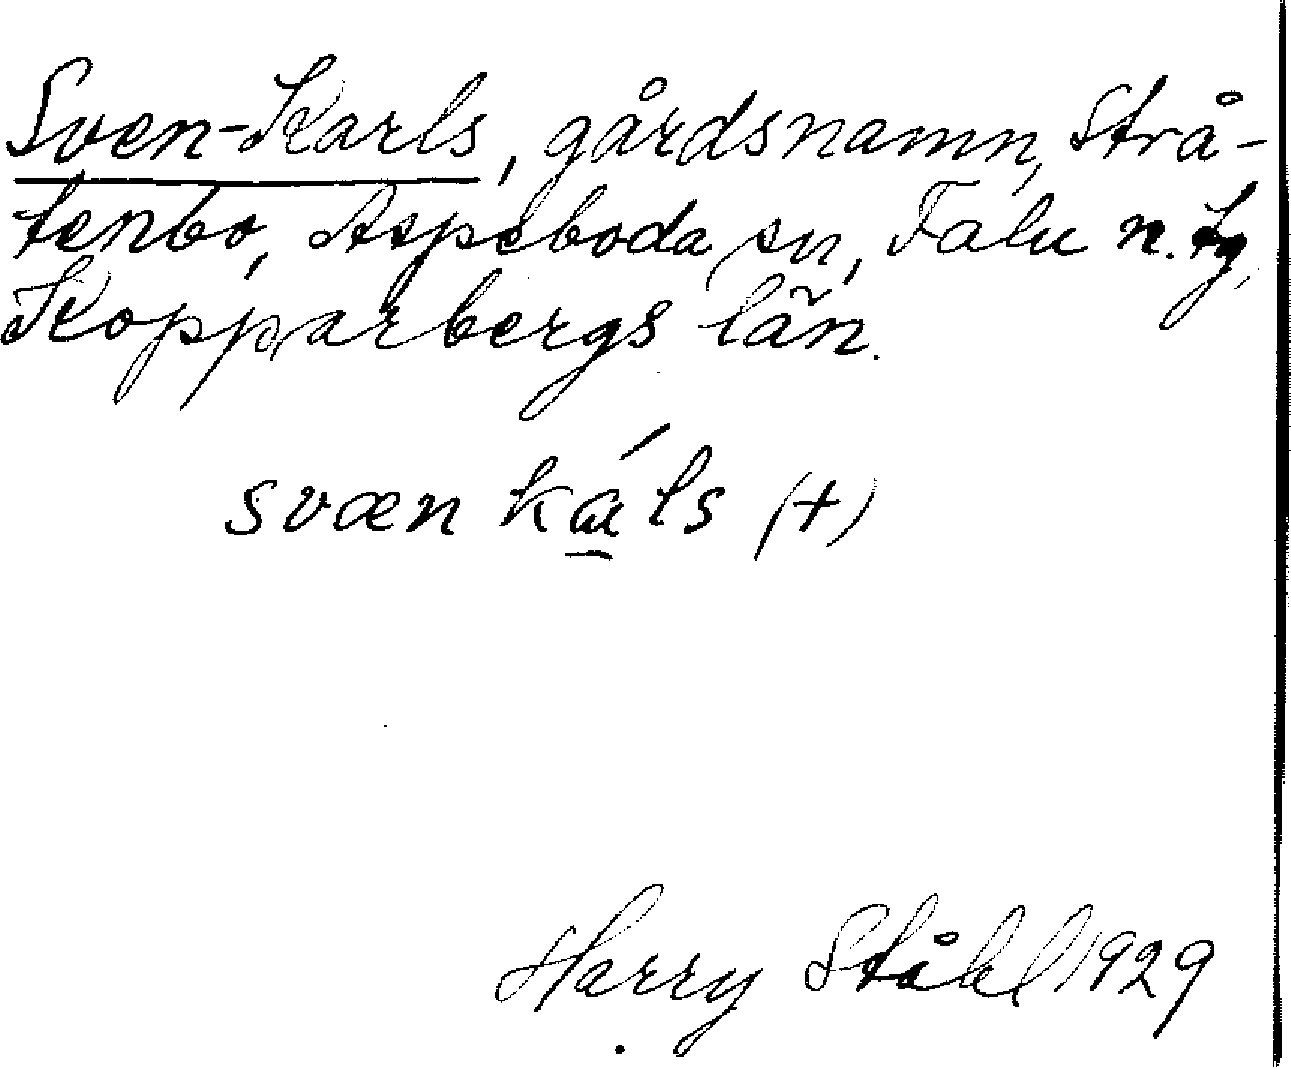 Sven-Karls, gårdsnamn, Strå-
tenbo, Aspeboda sn, Falu n. tg,
Kopparbergs län.
svæn ka̱ls (+)
Harry Ståhl 1929